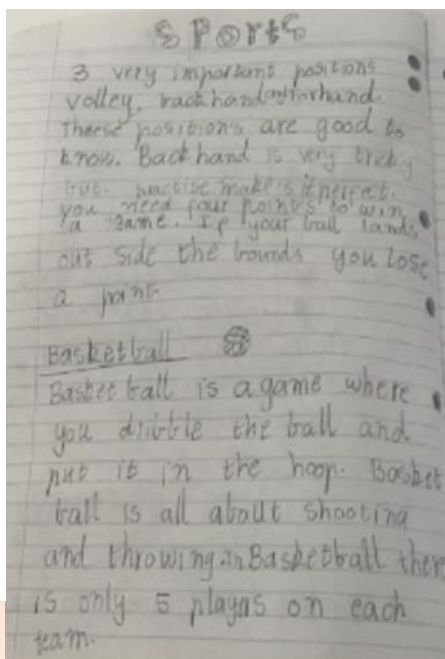 Sports
3 very important positions
volley, backhand and forhand.
Theese positions are good to
know. Backhand is very tricky
but practise make's it perfect.
you need four points to win
a game. If your ball lands
out side the bounds you lose
a point
Basketball
Basket ball is a game where
you dribble the ball and
put it in the hoop. Basket
ball is all about shooting
and throwing. in Basketball there
is only 5 playas on each
team.